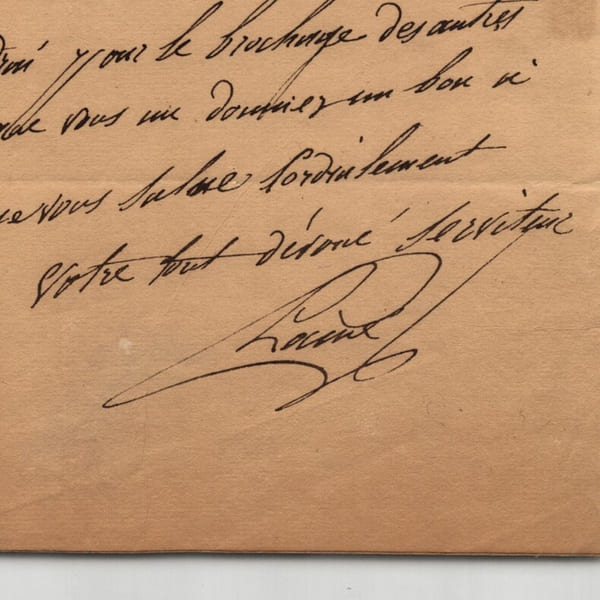 pour le brochage des autres
vous me donniez un bon à
vous salue Cordialement
votre tout dévoué serviteur